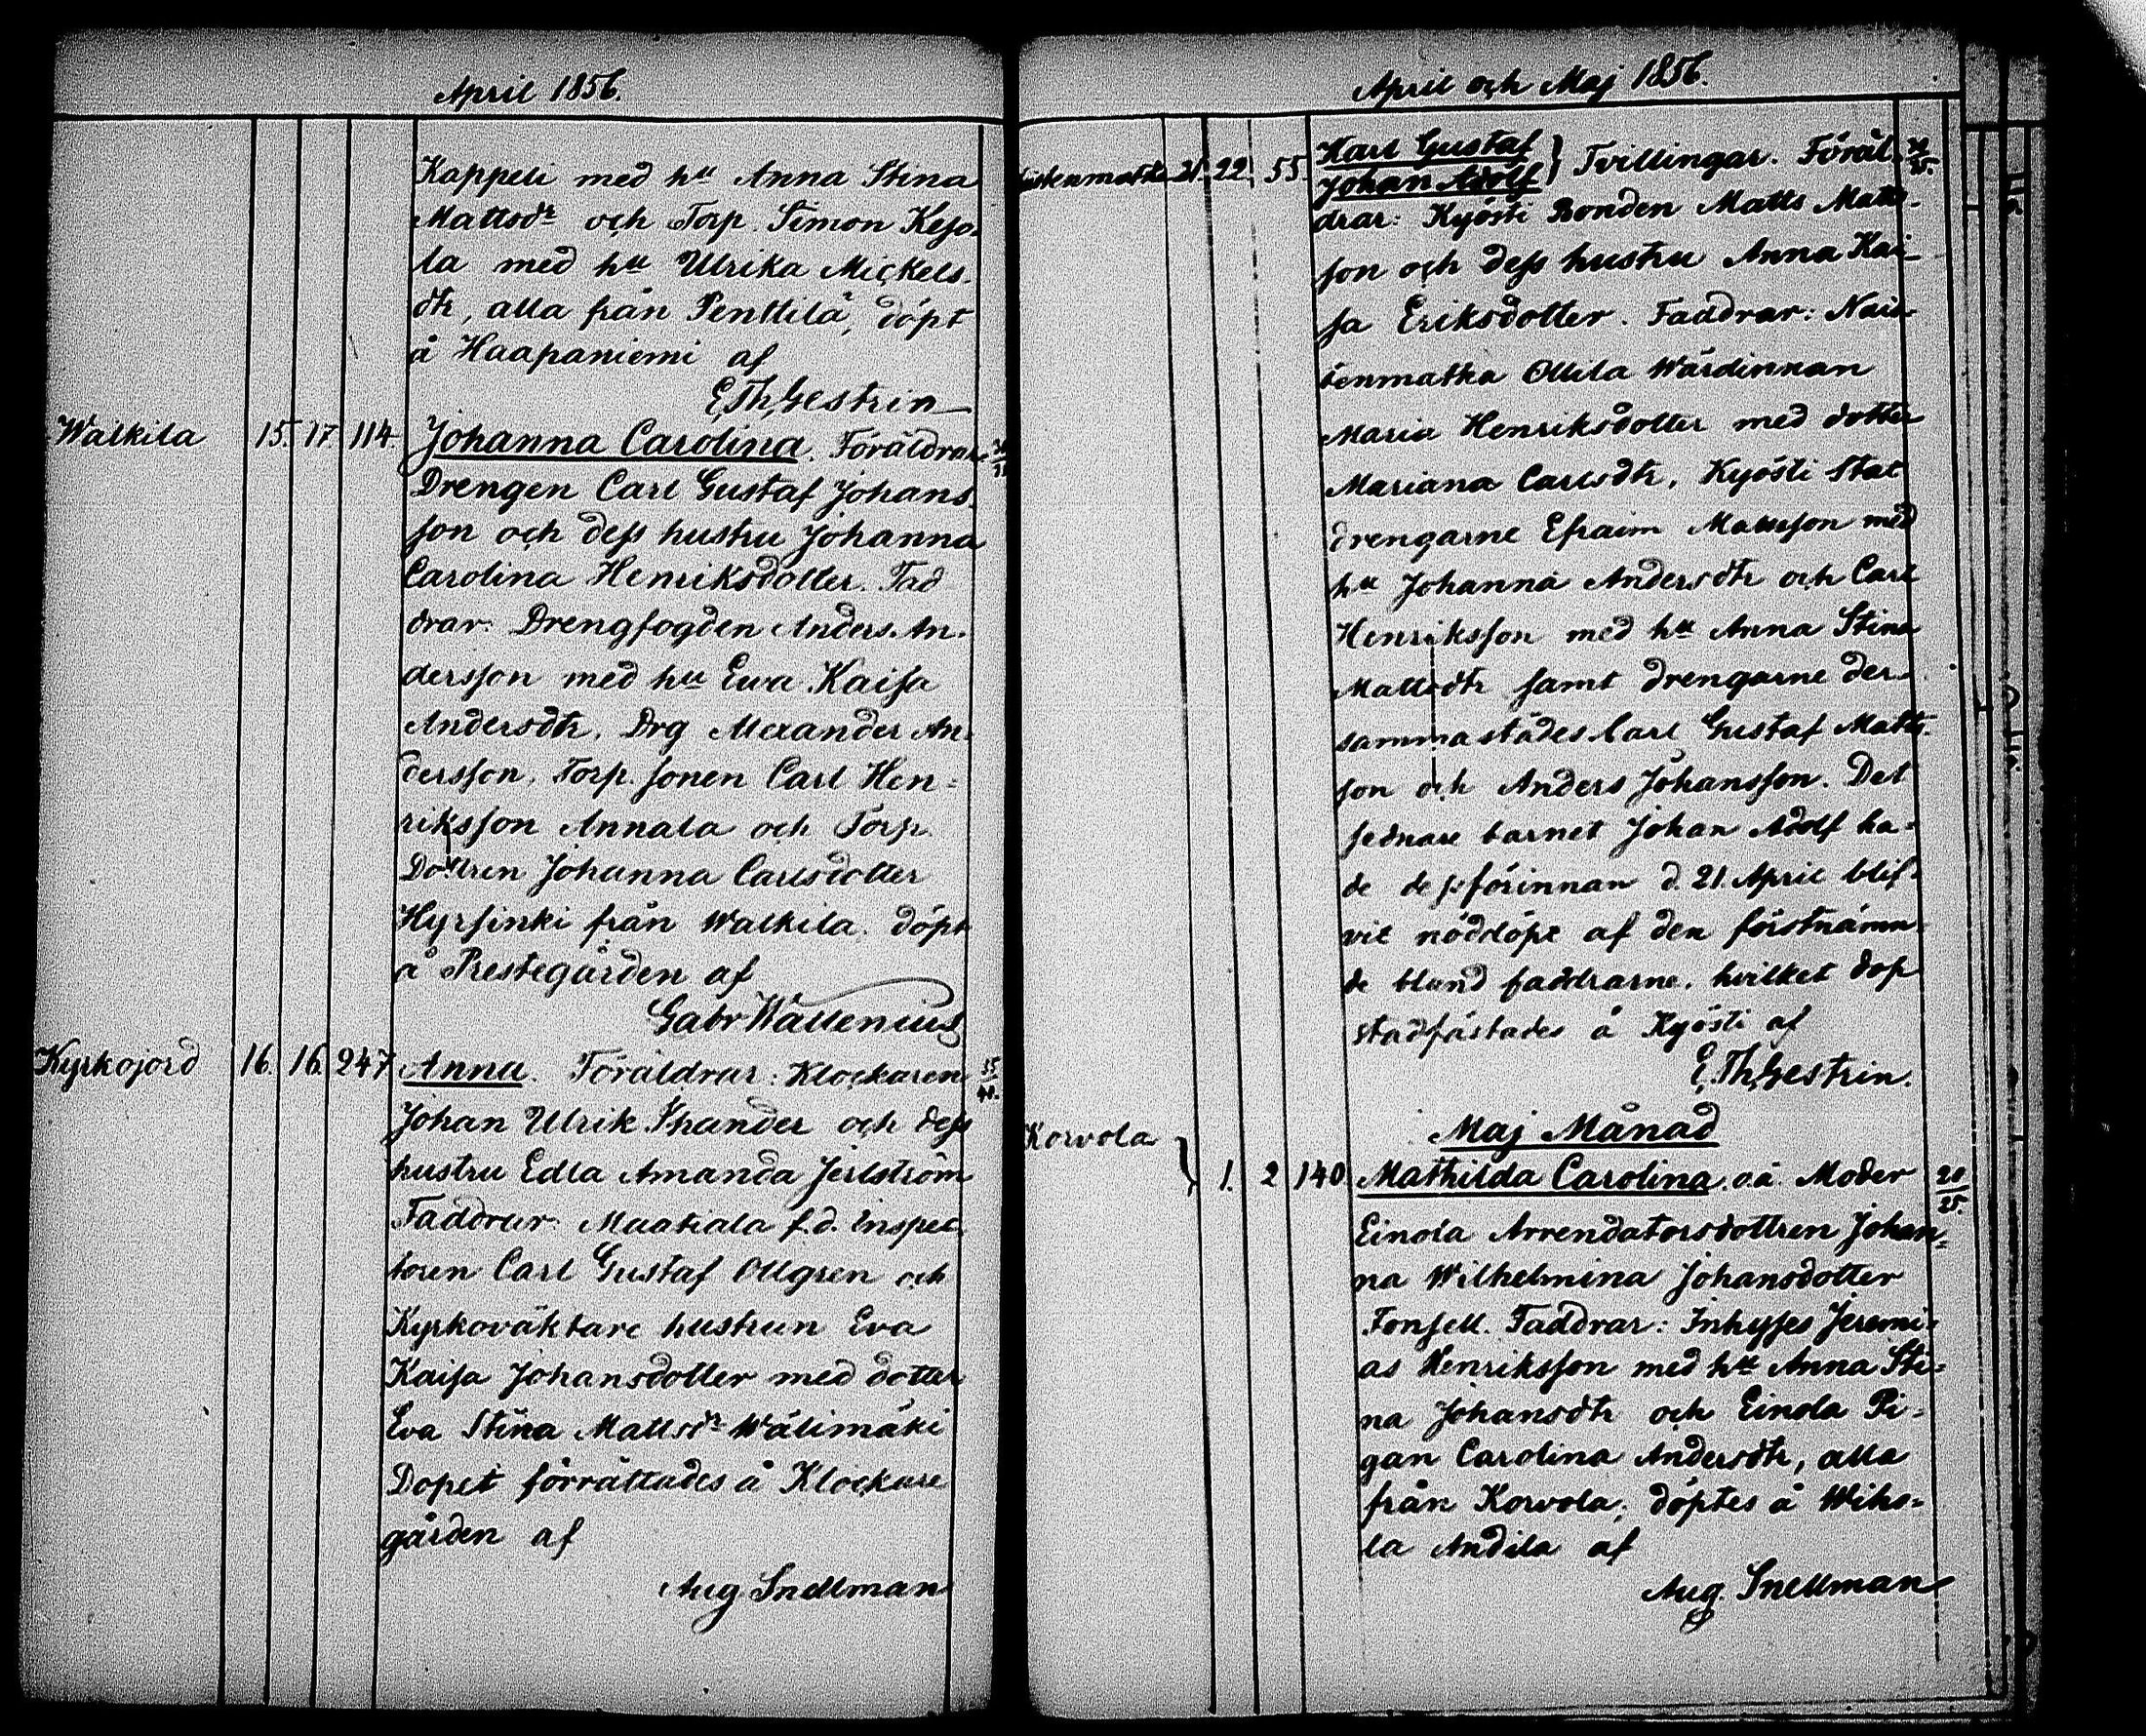 April 1856.
Kappeli med hu Anna Stina
Mattsdr och Torp. Simon Kejo-
la med hu Ulrika Mickels-
dtr, alla från Penttilä, döpt
å Haapaniemi af
E. Th. Gestrin
Walkila 15. 17. 114. Johanna Carolina. Föräldrar
Drengen Carl Gustaf Johans-
son och dess hustru Johanna
Carolina Henriksdotter. Fad
drar: Drengfogden Anders An-
dersson med hu Ewa Kaisa
Andersdtr, Drg Alexander An-
dersson, Torp. sonen Carl Hen=
riksson Annala och Torp.
Dottren Johanna Carlsdotter
Hyrsinki från Walkila. döpt
å Prestegården af
Gabr Wallenius
Kyrkojord 16. 16. 247 Anna. Föräldrar: Klockaren 35/40.
Johan Ulrik Thunder och dess
hustru Edla Amanda Jerlström
Faddrar: Maatiala f.d. Inspec-
toren Carl Gustaf Ollgren och
Kyrkoväktare hustrun Eva
Kaisa Johansdotter med dotter
Eva Stina Mattsdr Wälimäki
Dopet förrättades å Klockare
gården af
Aug. Snellman
April och Maj 1856.
21. 22. 55. Karl Gustaf
Johan Adolf } Tvillingar. Föräl-
drar: Kyösti Bonden Matts Matts-
son och dess hustru Anna Kai-
sa Eriksdotter. Faddrar: Nais-
tenmatka Ollila Wärdinnan
Maria Henriksdotter med dotter
Mariana Carlsdtr, Kyösti Stat
drengarne Efraim Mattsson med
hu Johanna Andersdtr och Carl
Henriksson med hu Anna Stina
Mattsdtr samt drengarne der-
sammastädes Carl Gustaf Matts-
son och Anders Johansson. Det
sednare barnet Johan Adolf ha-
de dessförinnan d. 21. April blif-
vit nöddöpt af den förstnämn-
de bland faddrarne. hvilket dop
stadfästades å Kyösti af
E. Th. Gestrin.
Maj Månad
Korvola } 1. 2 140 Mathilda Carolina. o.ä. Moder 20/25.
Einola Arrendatorsdottren Johan=
na Wilhelmina Johansdotter
Fonsell. Faddrar: Inhyses Jeremi-
as Henriksson med hu Anna Sti=
na Johansdtr och Einola Pi=
gan Carolina Andersdtr, alla
från Korvola; döptes å Wiho=
la Andila af
Aug. Snellman